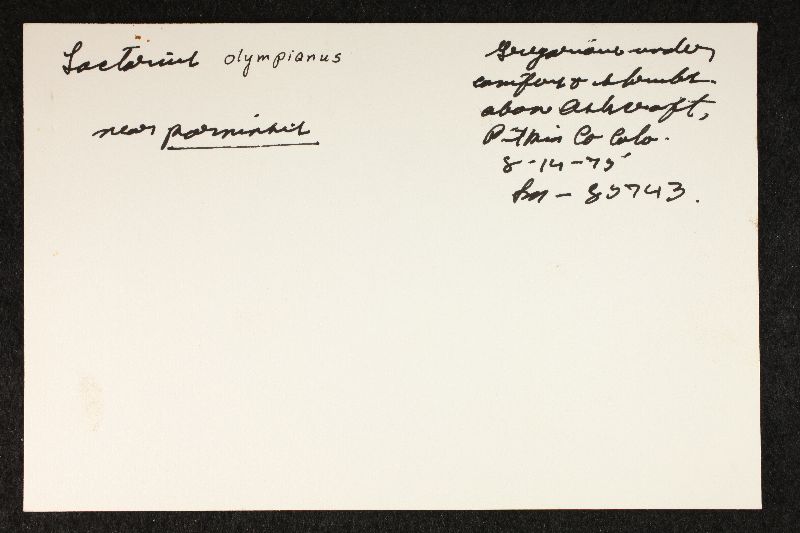 Lactarius olympianus
near parninkii
Gregarious under
conifers & shrubs
above Ashcroft,
Pitkin Co Colo.
8-14-75
Sm - 85743.